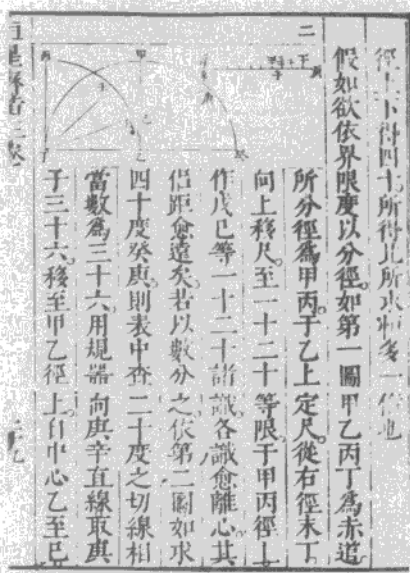 徑上下得四十九所得比所求恒多一倍也
假如欲依界限度以分徑如第一圖甲乙丙丁爲赤道
所分徑爲甲丙于乙上定尺從右徑末丁
向上移尺至一十二十等限于甲丙徑上
作戊己等一十二十諸識各識愈離心其
侣距愈遠矣若以數分之依第二圖如求
四十度癸庚則表中查二十度之切線相
當數爲三十六用規器向庚辛直線取庚
于三十六移至甲乙徑上自中心乙至己
二